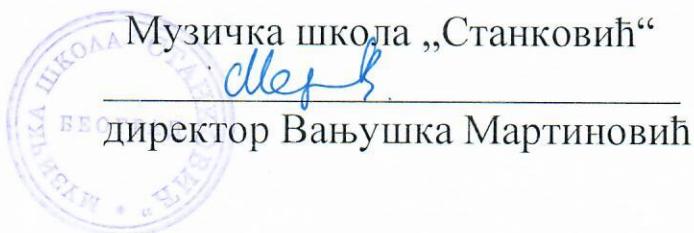 Музичка школа „Станковић“
директор Вањушка Мартиновић
МУЗИЧКА ШКОЛА „СТАНКОВИЋ“
БЕОГРАД